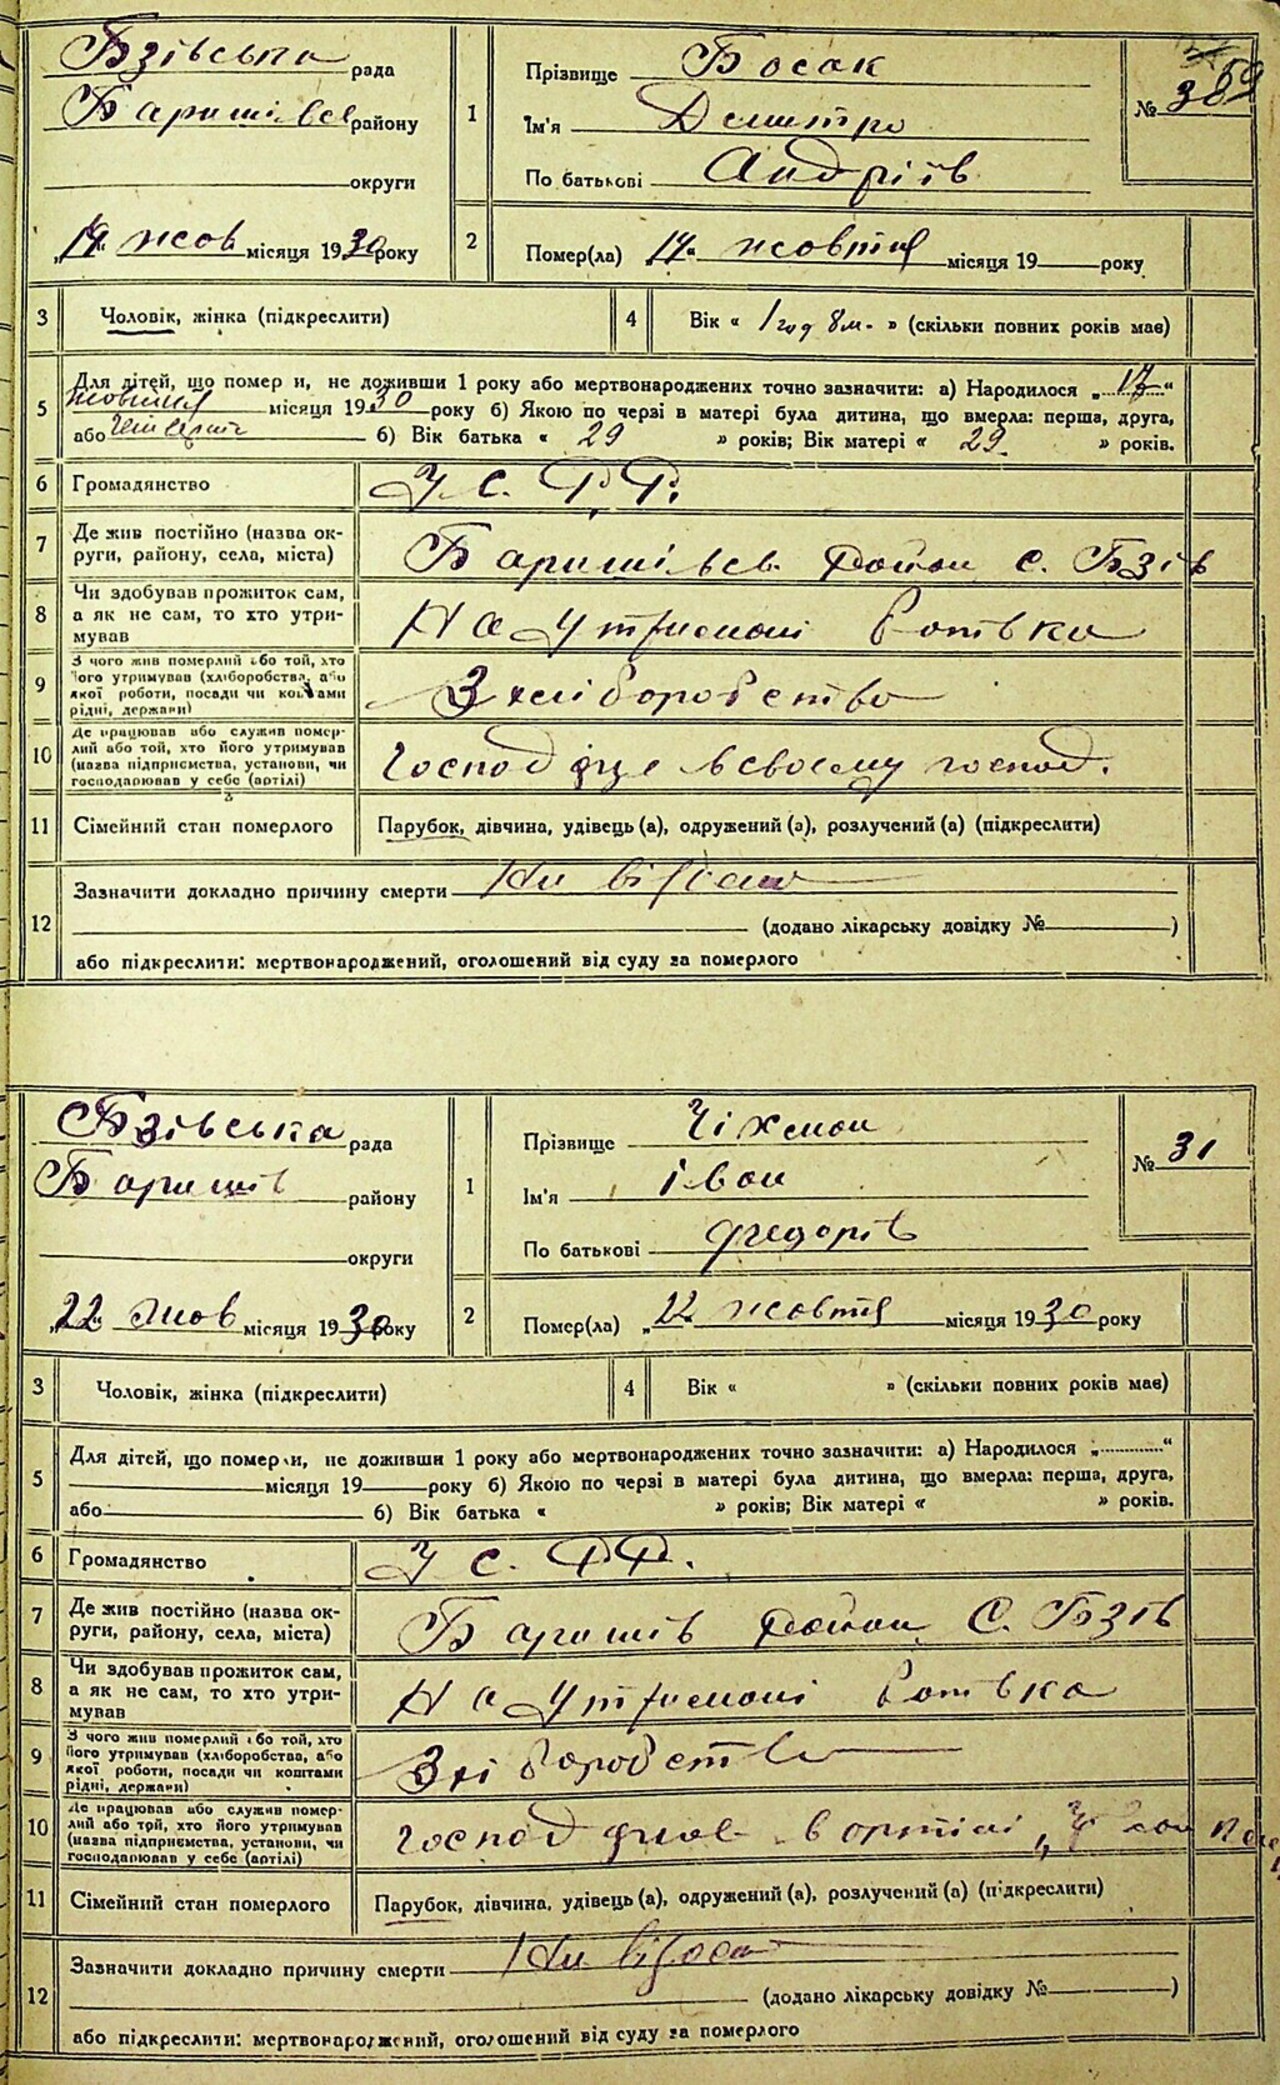 Бзівська рада
Баришівсь району
округи
жов місяця 1930 року
1
Прізвище Босак
Ім'я Дмитро
По батькові Андріїв
№
2
Помер(ла) жовтня місяця 19 року
3
Чоловік, жінка (підкреслити)
4
Вік « 1 год 8 м. » (скільки повних років має)
5
Для дітей, що померли, не доживши 1 року або мертвонароджених точно зазначити: а) Народилося „ “
жовтня місяця 1930 року б) Якою по черзі в матері була дитина, що вмерла: перша, друга,
або б) Вік батька « 29 » років; Вік матері « 29 » років.
6
Громадянство
У С. Р. Р.
7
Де жив постійно (назва ок-
руги, району, села, міста)
Баришівсь район с. Бзів
8
Чи здобував прожиток сам,
а як не сам, то хто утри-
мував
На утримані батька
9
З чого жив померлий або той, хто
його утримував (хліборобства, або
якої роботи, посади чи коштами
рідні, держави)
З хліборобства
10
Де працював або служив помер-
лий або той, хто його утримував
(назва підприємства, установи, чи
господарював у себе (артілі)
в своему господ.
11
Сімейний стан померлого
Парубок, дівчина, удівець (а), одружений (а), розлучений (а) (підкреслити)
12
Зазначити докладно причину смерти Не відомо
(додано лікарську довідку № )
або підкреслити: мертвонароджений, оголошений від суду за померлого
Бзівська рада
Баришів району
округи
„22“ жов місяця 1930 року
1
Прізвище
Ім'я Іван
По батькові Федорів
№ 31
2
Помер(ла) „22“ жовтня місяця 1930 року
3
Чоловік, жінка (підкреслити)
4
Вік « » (скільки повних років має)
5
Для дітей, що померли, не доживши 1 року або мертвонароджених точно зазначити: а) Народилося „ “
місяця 19 року б) Якою по черзі в матері була дитина, що вмерла: перша, друга,
або б) Вік батька « » років; Вік матері « » років.
6
Громадянство
У С. Р. Р.
7
Де жив постійно (назва ок-
руги, району, села, міста)
Баришів район С. Бзів
8
Чи здобував прожиток сам,
а як не сам, то хто утри-
мував
На утримані батька
9
З чого жив померлий або той, хто
його утримував (хліборобства, або
якої роботи, посади чи коштами
рідні, держави)
10
Де працював або служив помер-
лий або той, хто його утримував
(назва підприємства, установи, чи
господарював у себе (артілі)
в артілі
11
Сімейний стан померлого
Парубок, дівчина, удівець (а), одружений (а), розлучений (а) (підкреслити)
12
Зазначити докладно причину смерти Не відомо
(додано лікарську довідку № )
або підкреслити: мертвонароджений, оголошений від суду за померлого